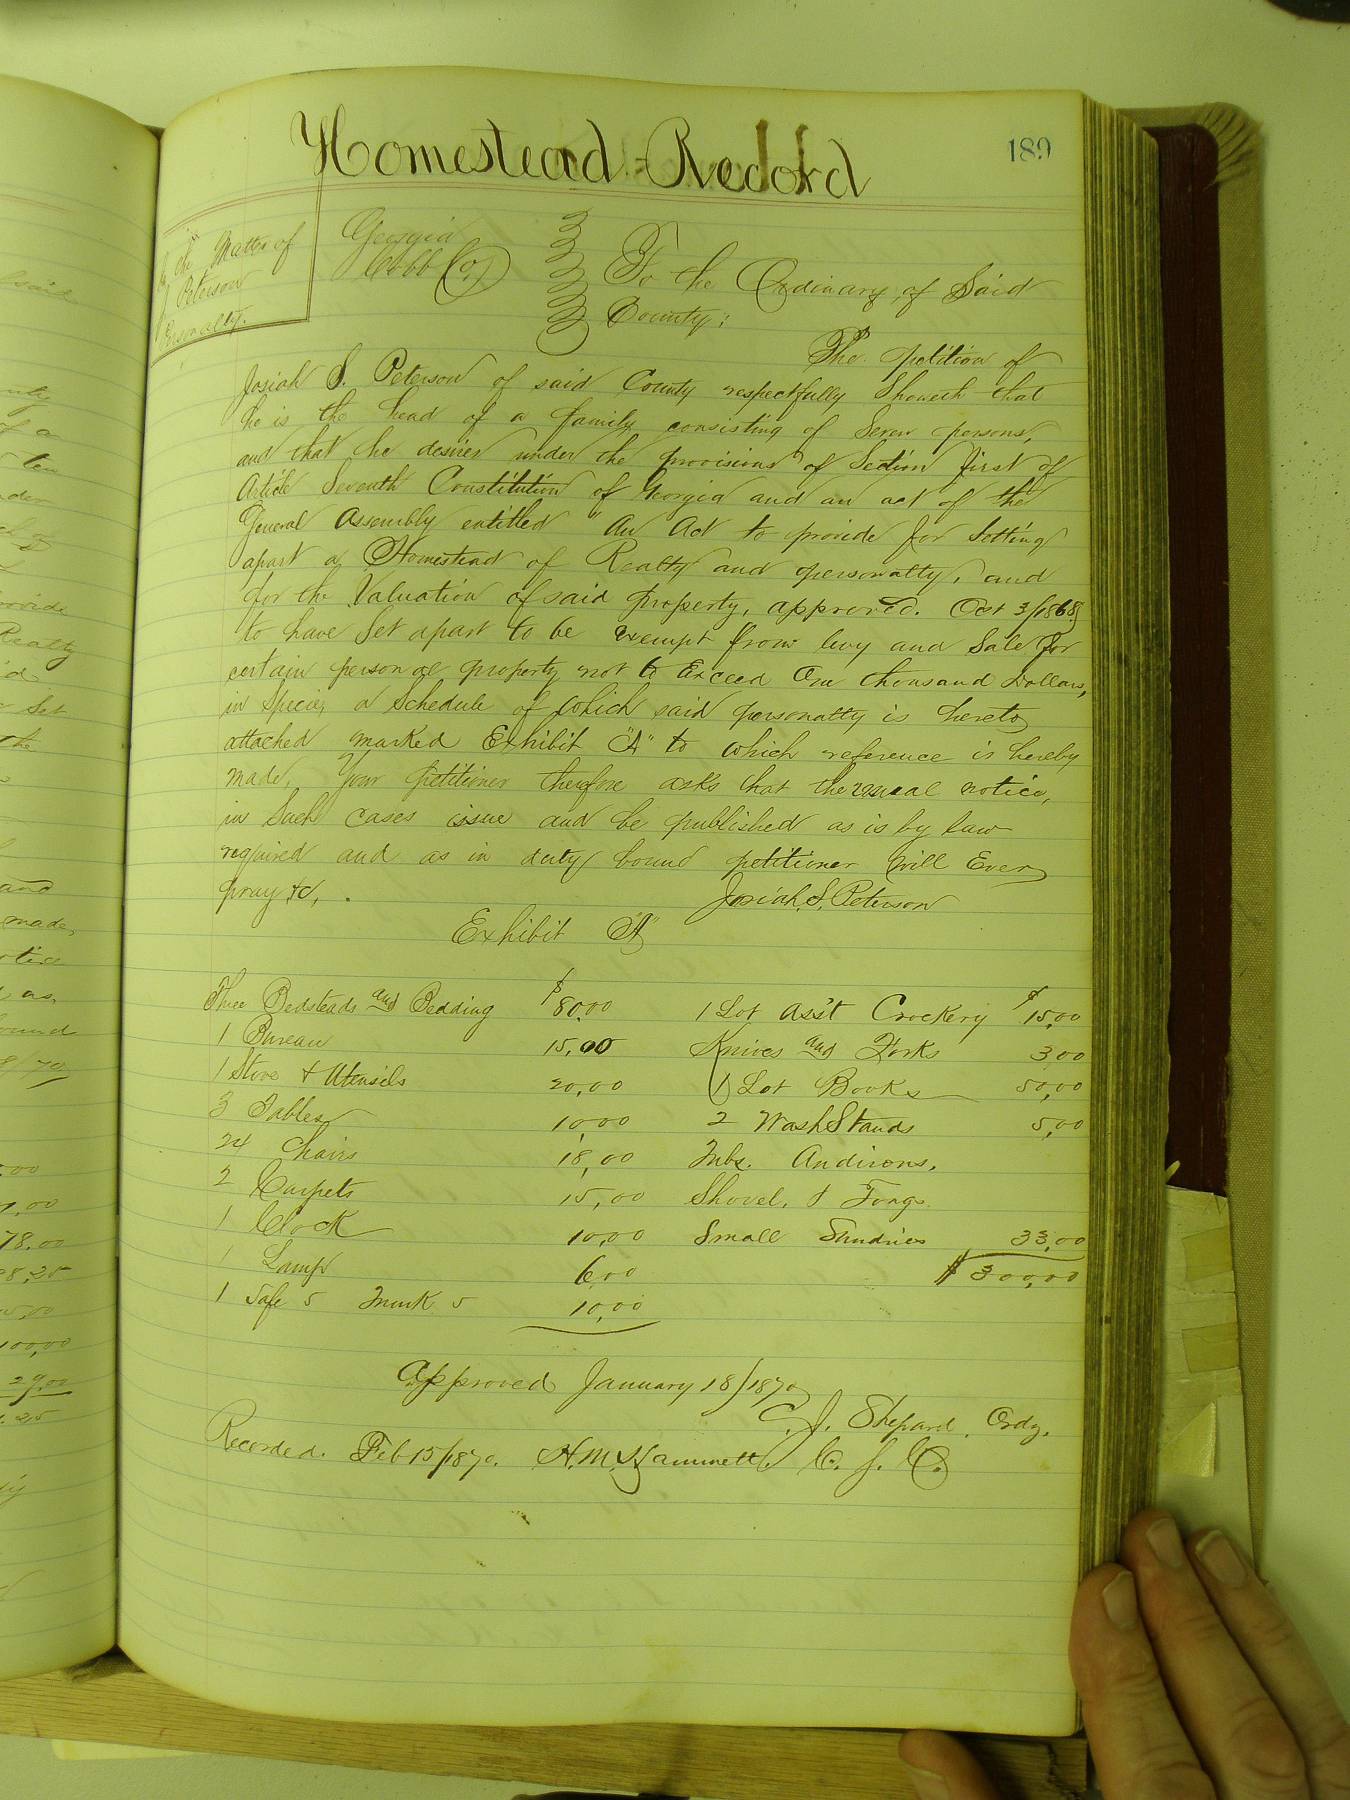 Homestead Record
189
In the Matter of
J Peterson
Personalty.
Georgia
Cobb Co)
To the Ordinary of Said
County:
The petition of
Josiah S. Peterson of said County respectfully Showeth that
he is the head of a family consisting of Seven persons,
and that he desires under the provisions of Section first of
Article Seventh Constitution of Georgia and an act of the
General Assembly entitled "An Act to provide for Setting
apart a Homestead of Realty and personalty, and
for the Valuation of said property, approved. Oct 3/1868,
to have Set apart to be exempt from levy and Sale for
certain personal property not to Exceed One thousand Dollars,
in Specie, a Schedule of which said personalty is hereto
attached marked Exhibit "A" to which reference is hereby
made, Your petitioner therefore asks that the usual notice,
in Such cases issue and be published as is by law
required and as in duty bound petitioner Will Ever
pray &c,
Josiah. S. Peterson
Exhibit "A"
Three Bedsteads and Bedding $80.00
1 Bureau 15,00
1 Stove & Utensils 20,00
3 Tables 10,00
24 Chairs 18,00
2 Carpets 15,00
1 Clock 10,00
1 Lamp 6,00
1 Safe 5 Trunk 5 10,00
1 Lot Ass't Crockery $15,00
Knives and Forks 3,00
1 Lot Books 50,00
2 Wash Stands 5,00
Tubs. Andirons.
Shovel, & Tongs.
Small Sundries 33,00
$ 300,00
Approved January 18/1870
C. J. Shepard. Ordy.
Recorded. Feb 15/1870. H. M. Hammett, C. S. C.